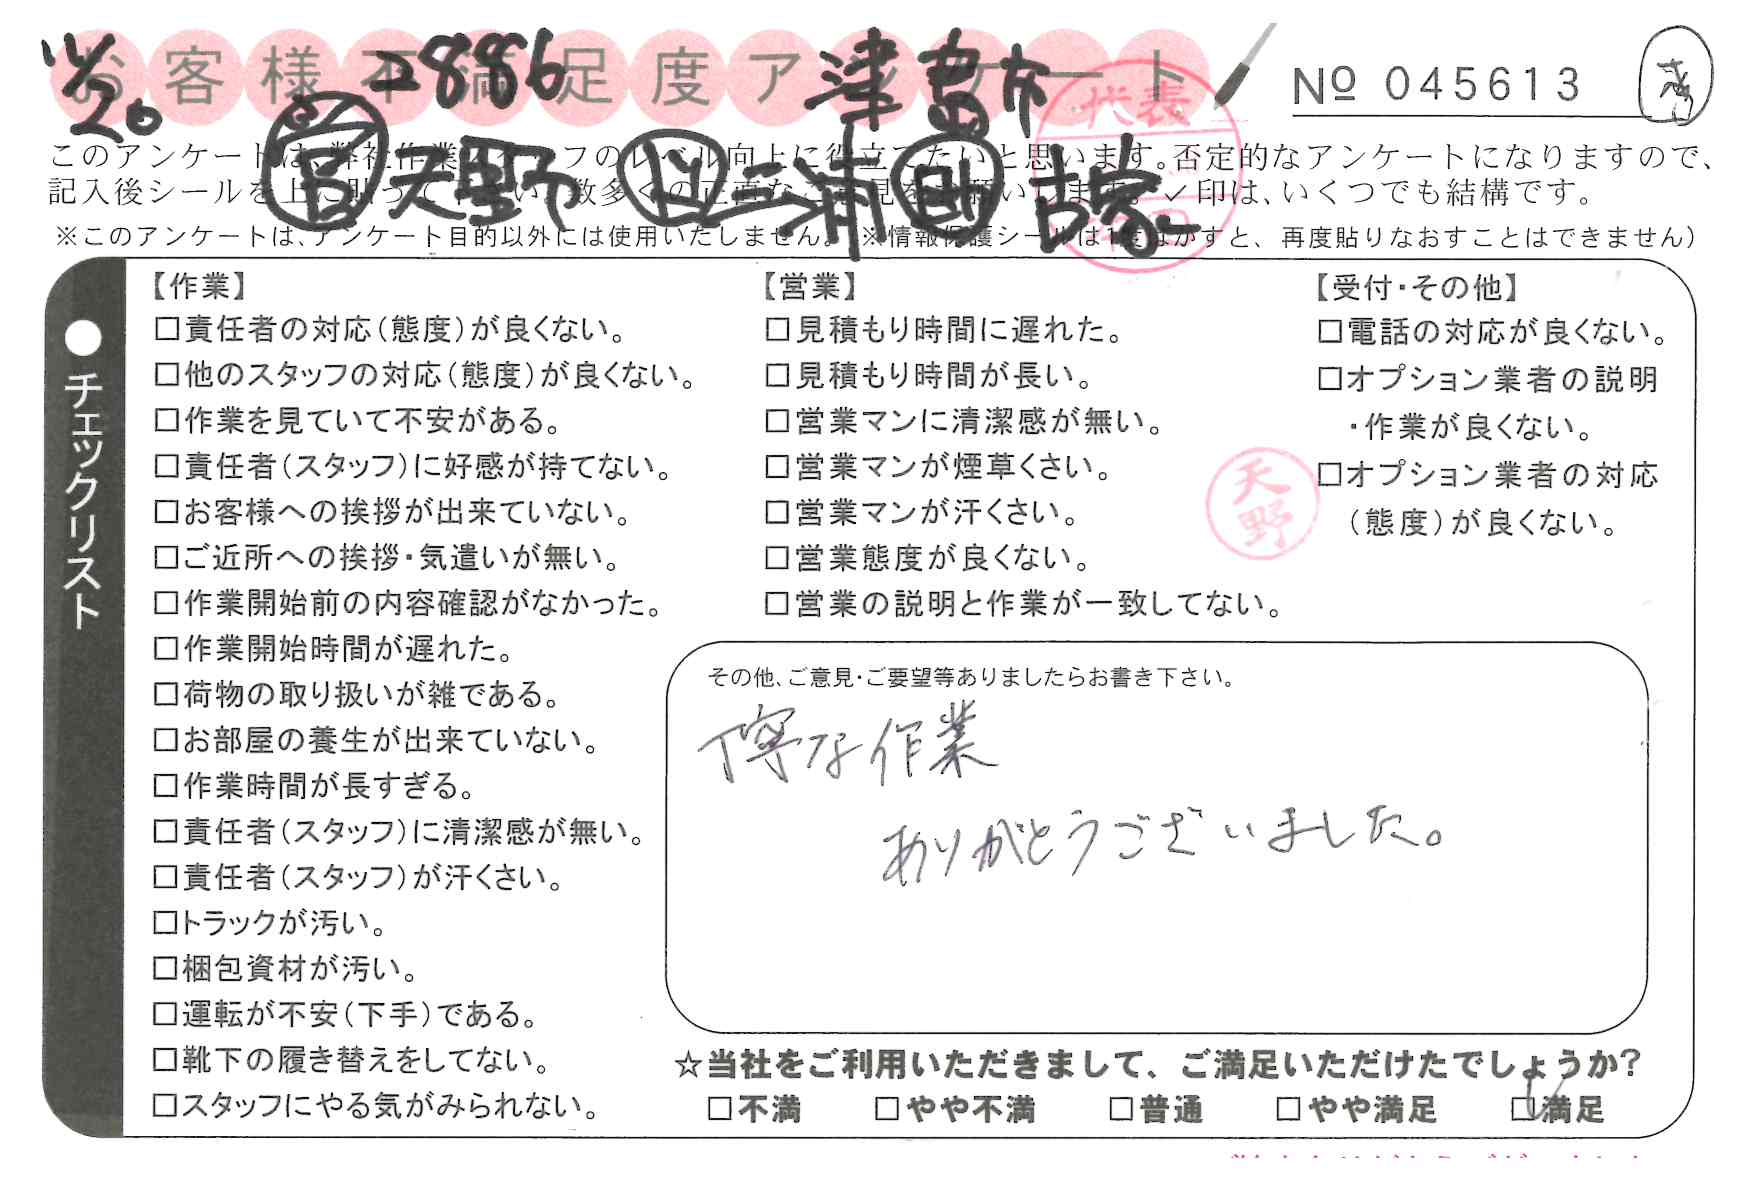 お客様不満足度アンケート
11/20 2886 津島市
№ 045613
代表
天野 三浦 副 古塚
このアンケートは、弊社作業スタッフのレベル向上に役立てたいと思います。否定的なアンケートになりますので、
記入後シールを上に貼って下さい。数多くの正直なご意見をお願いします。✓印は、いくつでも結構です。
※このアンケートは、アンケート目的以外には使用いたしません。(※情報保護シールは1度はがすと、再度貼りなおすことはできません)
●チェックリスト
【作業】
□責任者の対応(態度)が良くない。
□他のスタッフの対応(態度)が良くない。
□作業を見ていて不安がある。
□責任者(スタッフ)に好感が持てない。
□お客様への挨拶が出来ていない。
□ご近所への挨拶・気遣いが無い。
□作業開始前の内容確認がなかった。
□作業開始時間が遅れた。
□荷物の取り扱いが雑である。
□お部屋の養生が出来ていない。
□作業時間が長すぎる。
□責任者(スタッフ)に清潔感が無い。
□責任者(スタッフ)が汗くさい。
□トラックが汚い。
□梱包資材が汚い。
□運転が不安(下手)である。
□靴下の履き替えをしてない。
□スタッフにやる気がみられない。
【営業】
□見積もり時間に遅れた。
□見積もり時間が長い。
□営業マンに清潔感が無い。
□営業マンが煙草くさい。
□営業マンが汗くさい。
□営業態度が良くない。
□営業の説明と作業が一致してない。
【受付・その他】
□電話の対応が良くない。
□オプション業者の説明
・作業が良くない。
□オプション業者の対応
(態度)が良くない。
天野
その他、ご意見・ご要望等ありましたらお書き下さい。
丁寧な作業
ありがとうございました。
☆当社をご利用いただきまして、ご満足いただけたでしょうか?
□不満 □やや不満 □普通 □やや満足 □満足